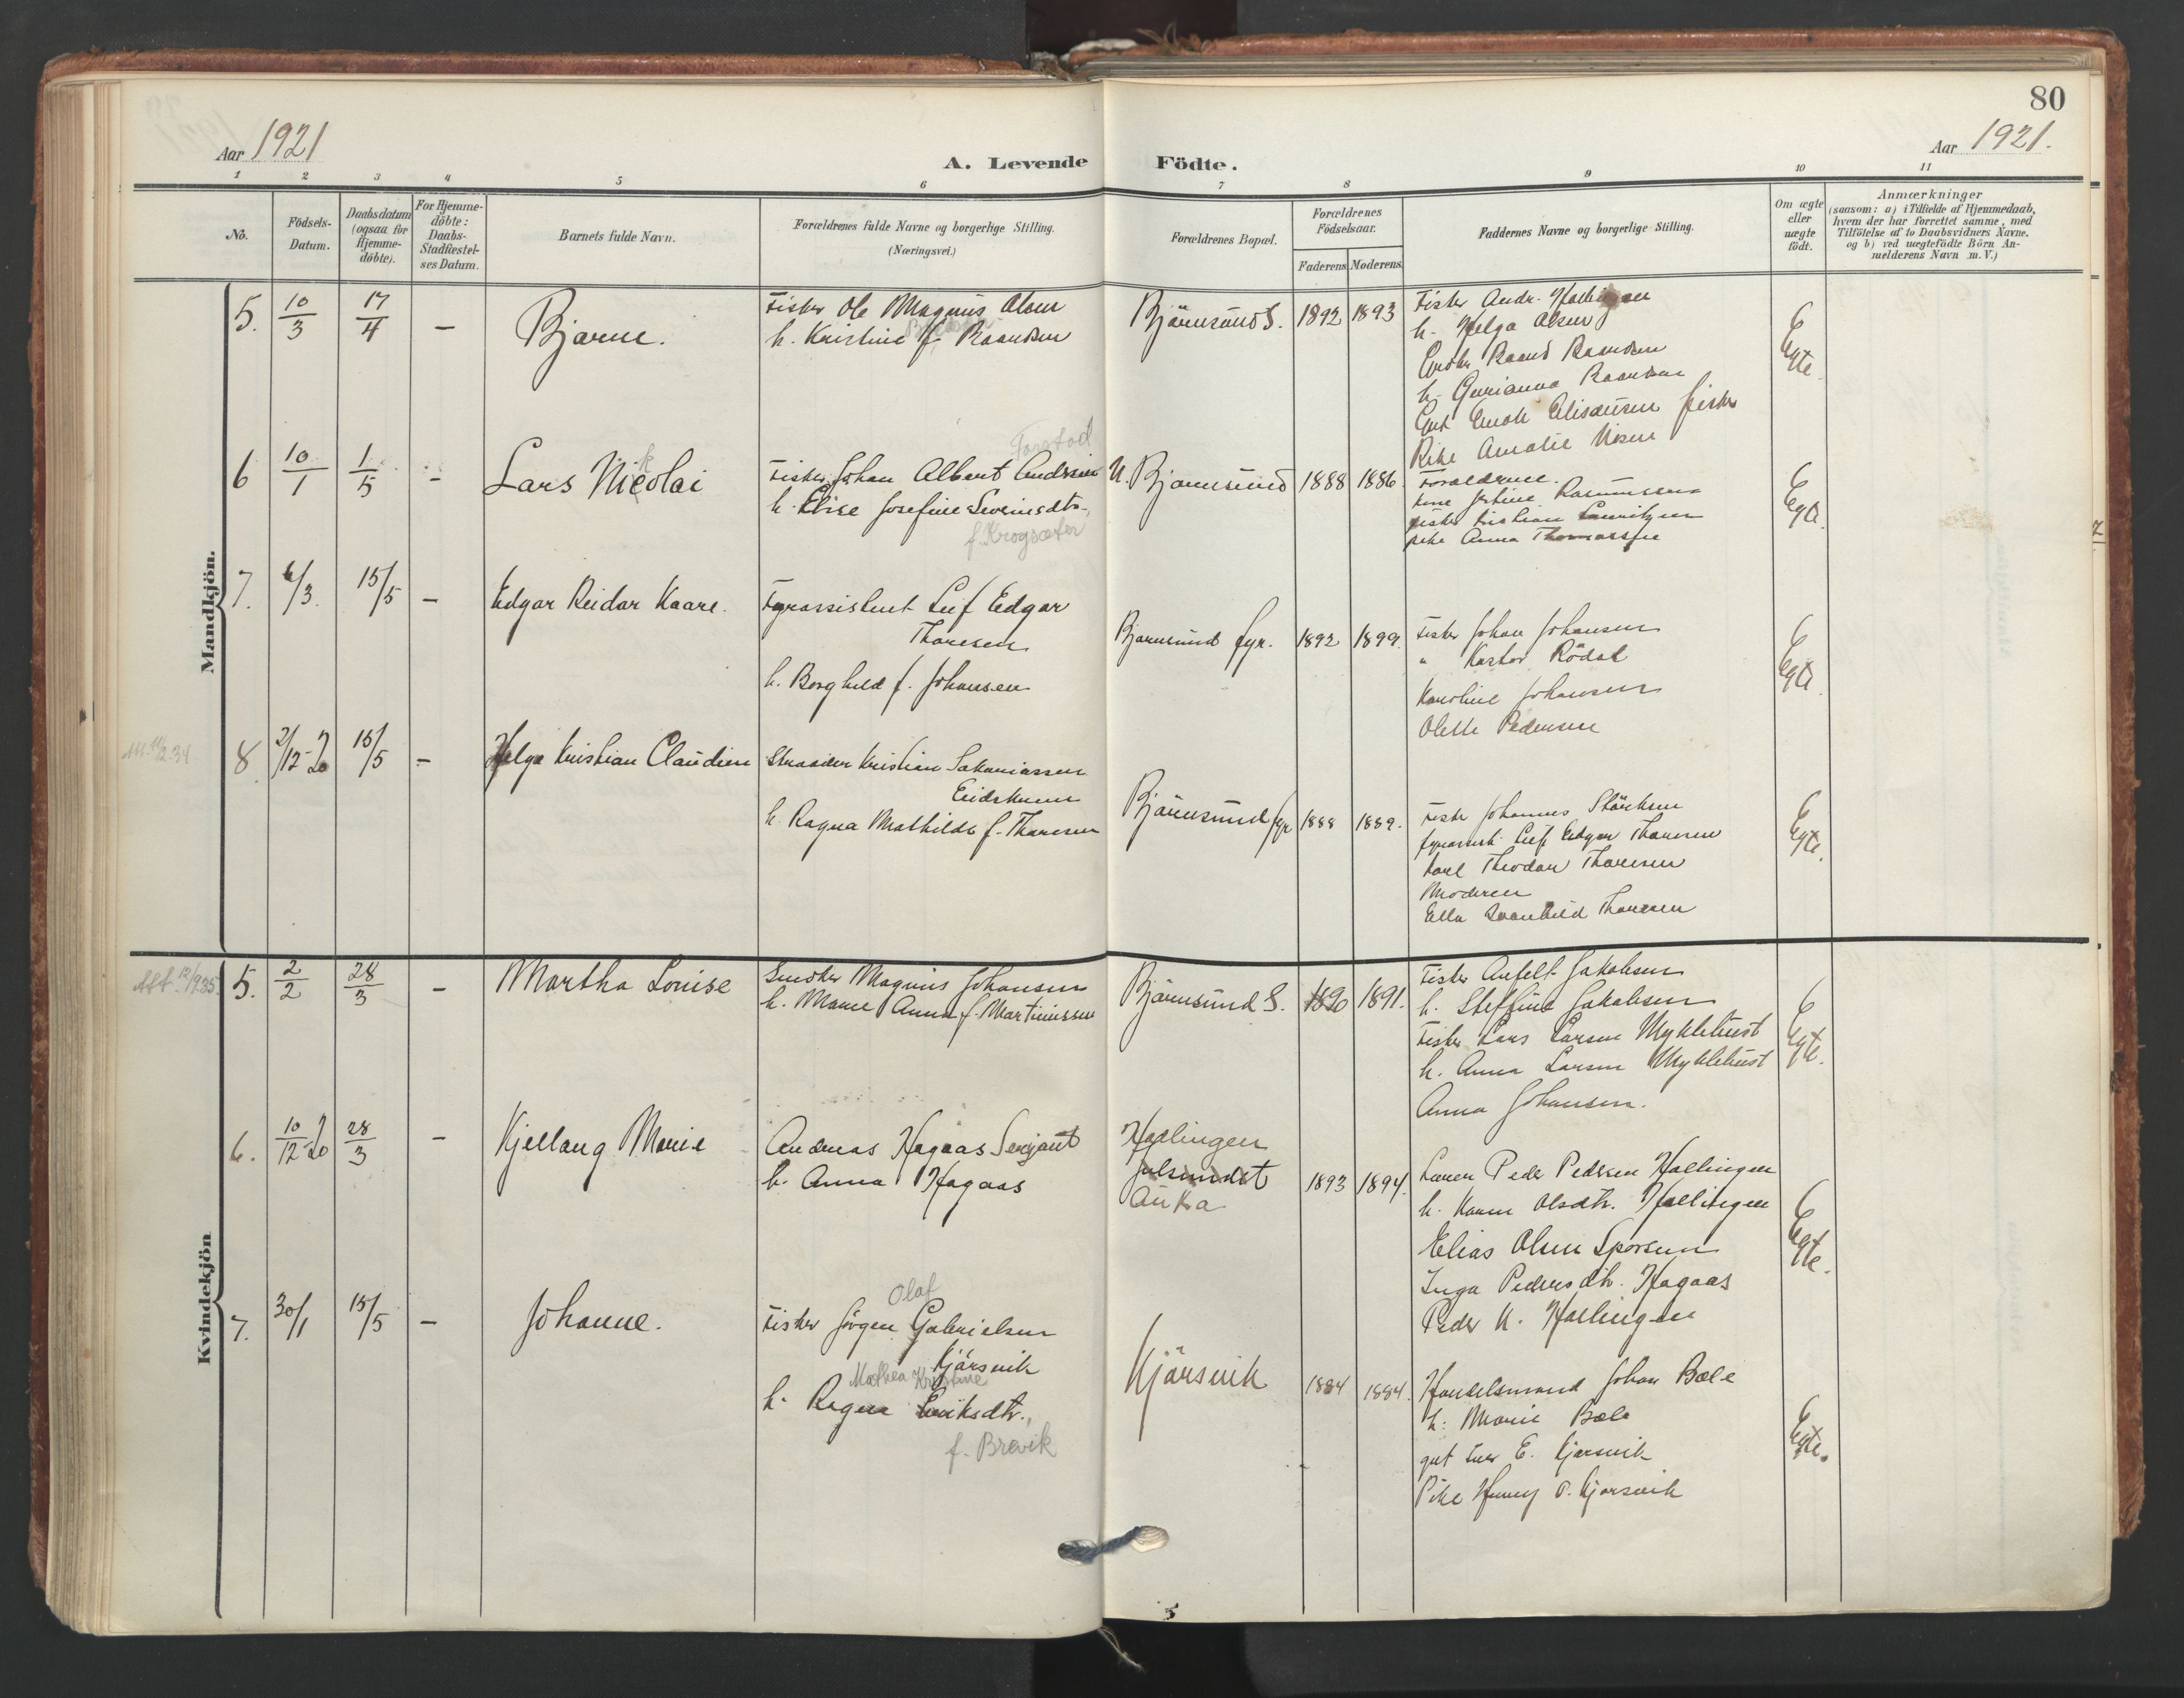 80
Aar 1921
Aar 1921.
A. Levende Födte.
1 2 3 4 5 6 7 8 9 10 11
No.
Födsels-
Datum.
Daabsdatum
(ogsaa for
Hjemme-
döbte).
For Hjemme-
döbte:
Daabs-
Stadfæstel-
ses Datum.
Barnets fulde Navn.
Forældrenes fulde Navne og borgerlige Stilling.
(Næringsvei.)
Forældrenes Bopæl.
Forældrenes
Födselsaar.
Faderens Moderens
Faddernes Navne og borgerlige Stilling.
Om ægte
eller
uægte
födt.
Anmærkninger
(saasom: a) i Tilfælde af Hjemmedaab,
hvem der har forrettet samme, med
Tilföielse af to Daabsvidners Navne.
og b) ved uægtefödte Börn An-
melderens Navn m.V.)
Mandkjön.
5. 10/3 17/4 – Bjarne.
Fisker Ole Magnus Olsen
h. Kristine f. Raandsen
Björnsund S. 1892 1893
Fisker Andr. Hallingen
h. Helga Olsen
Smoker Raand Raandsen
h. Gurianna Raandsen
Gut Enok Elisæusen fisker
Pike Amalie Nilsen
Egte.
6 10/1 1/5 – Lars Nicolai
k
Torstad
Fisker Johan Albert Andersen
h. Elise Josefine Severinsdtr.,
f. Krogsæter
N. Bjornsund 1888 1886
Forældrene.
Kone Jostine Rasmussen
fisker Kristian Lauritzen
pike Anna Thomassen
Egte.
7. 6/3. 15/5 – Edgar Reidar Kaare.
Fyrassistent Leif Edgar
Thoresen
h. Borghild f. Johansen
Bjornsund fyr. 1892 1899.
Fisker Johan Johansen
" Kastor Rödal
Karoline Johansen
Olette Pedersen
Egte.
8 2/12-20 15/5 – Helge Kristian Claudien
Skrædder Kristian Sakariassen
Eidskrem
h. Ragna Mathilde f. Thoresen
Björnsund fyr 1888 1889.
Fisker Johannes Stärksen
fyrassist. Leif Edgar Thoresen
Karl Theodor Thoresen
Moderen
Ella Svanhild Thoresen
Egte.
Kvindekjön
Att. 12/1935.
5. 2/2 28/3 – Martha Louise
Smoker Magnus Johansen
h. Marie Anna f. Martinussen
Björnsund S. 1890 1891.
Fisker Anfelt Jakobsen
h. Steffine Jakobsen
Fisker Lars Larsen Myklebust
h. Anna Larsen Myklebust
Anna Johansen.
Egte.
6. 10/12-20 28/3 – Kjellaug Marie
Andreas Hagaas Serjant
h. Anna Hagaas
Hallingen
Julsundet
Auka
1893 1894.
Peder Pedersen Hallingen
h. Karen Olsdtr. Hallingen
Elias Olsen Sporsem
Inga Pedersdtr. Hagaas
Peder K. Hallingen
Egte.
7. 30/1 15/5 – Johanne.
Olaf
Fisker Jörgen Gabrielsen
Kjörsvik
Mathea Kristine
h. Ragna Eriksdtr.,
f. Brevik
Kjörsvik 1884 1884.
Handelsmand Johan Bole
h. Marie Bole
gut Iver E. Kjörsvik
Pike Hanny O. Kjörsvik
Egte.